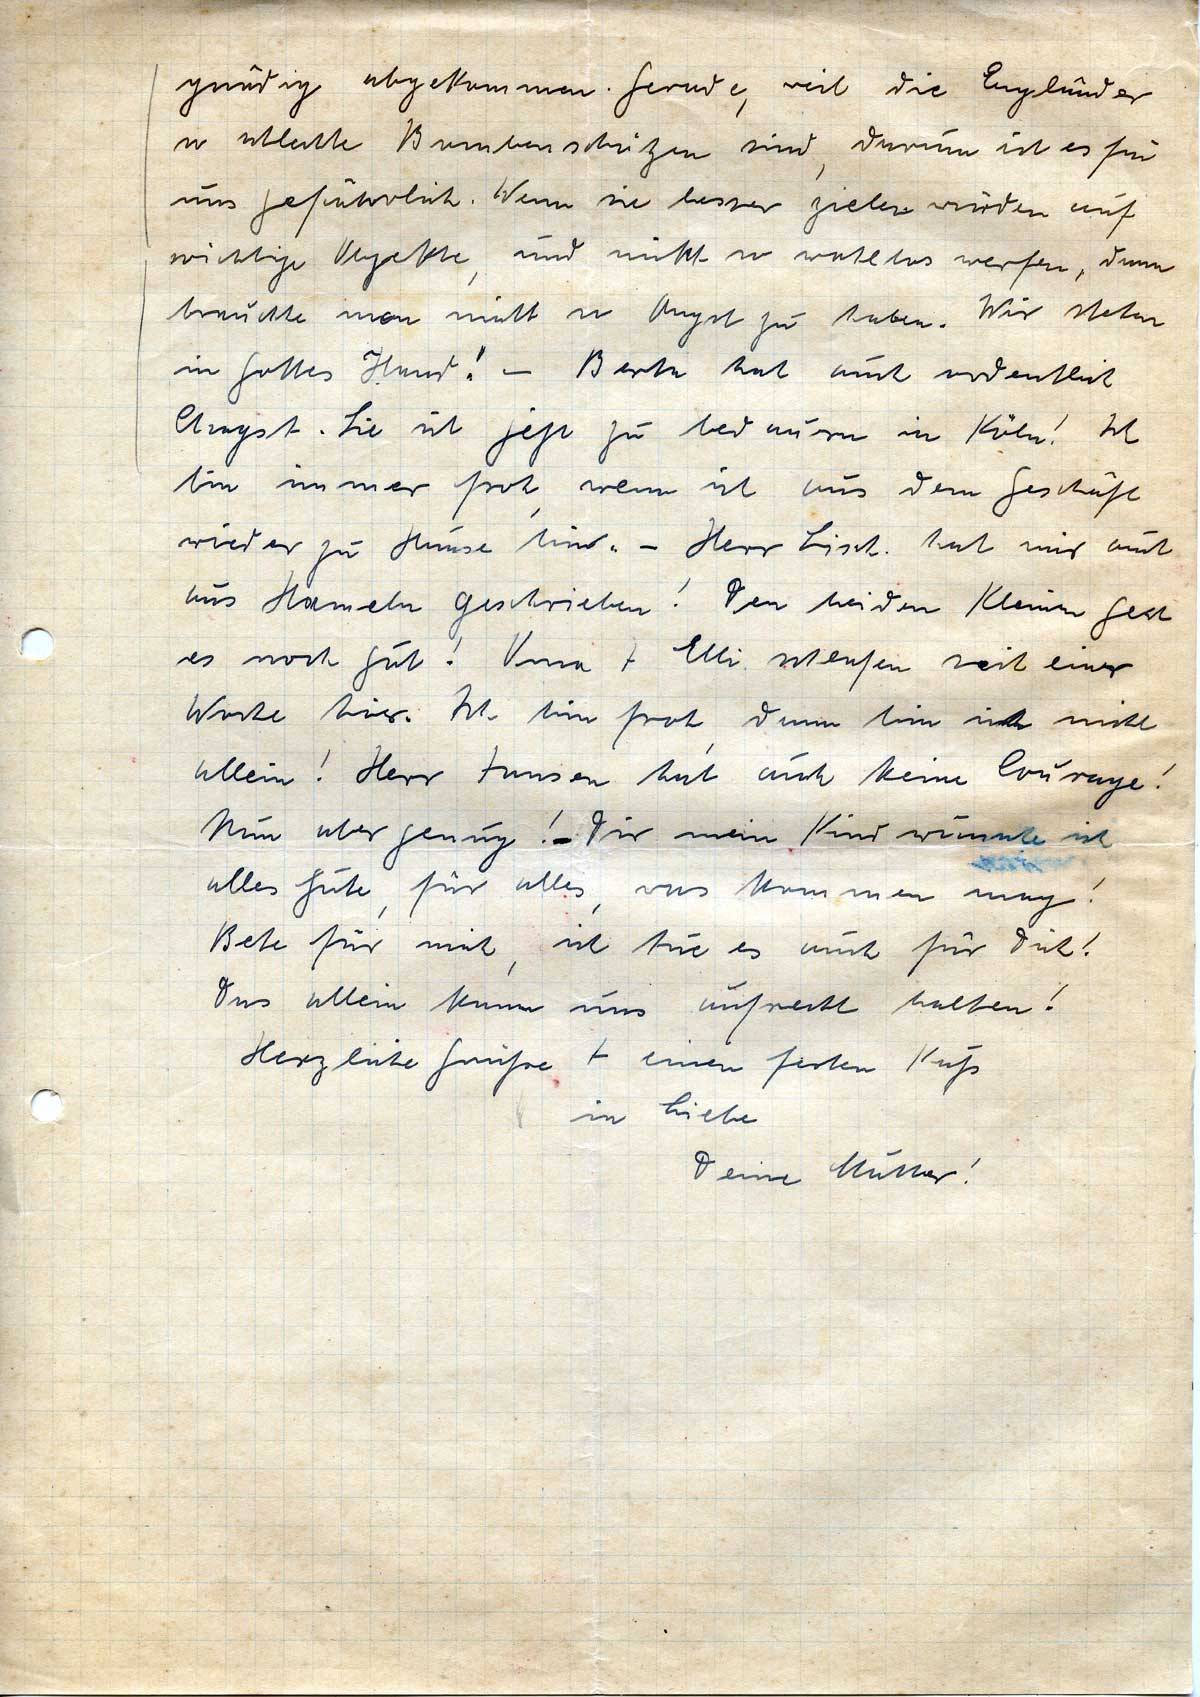 gnädig abgekommen. Gerade, weil die Engländer
so schlechte Bombenschützen sind, darum ist es für
uns gefährlich. Wenn sie besser zielen würden auf
wichtige Objekte, und nicht so wahllos werfen, dann
brauchte man nicht so Angst zu haben. Wir stehen
in Gottes Hand! – Berta hat auch ordentlich
Angst. Sie ist jetzt zu bedauern in Köln! Ich
bin immer froh, wenn ich aus dem Geschäft
wieder zu Hause bin. – Herr Lisch. hat mir auch
aus Hameln geschrieben! Den beiden Kleinen geht
es noch gut! + Elli schlafen seit einer
Woche hier. Ich bin froh, dann bin ich nicht
allein! Herr Jansen hat auch keine Courage!
Nun aber genug! – Dir mein Kind wünsche ich
alles Gute, für alles, was kommen mag!
Bete für mich, ich tue es auch für Dich!
Das allein kann uns aufrecht halten!
Herzliche Grüße + einen festen Kuß
in Liebe
Deine Mutter!